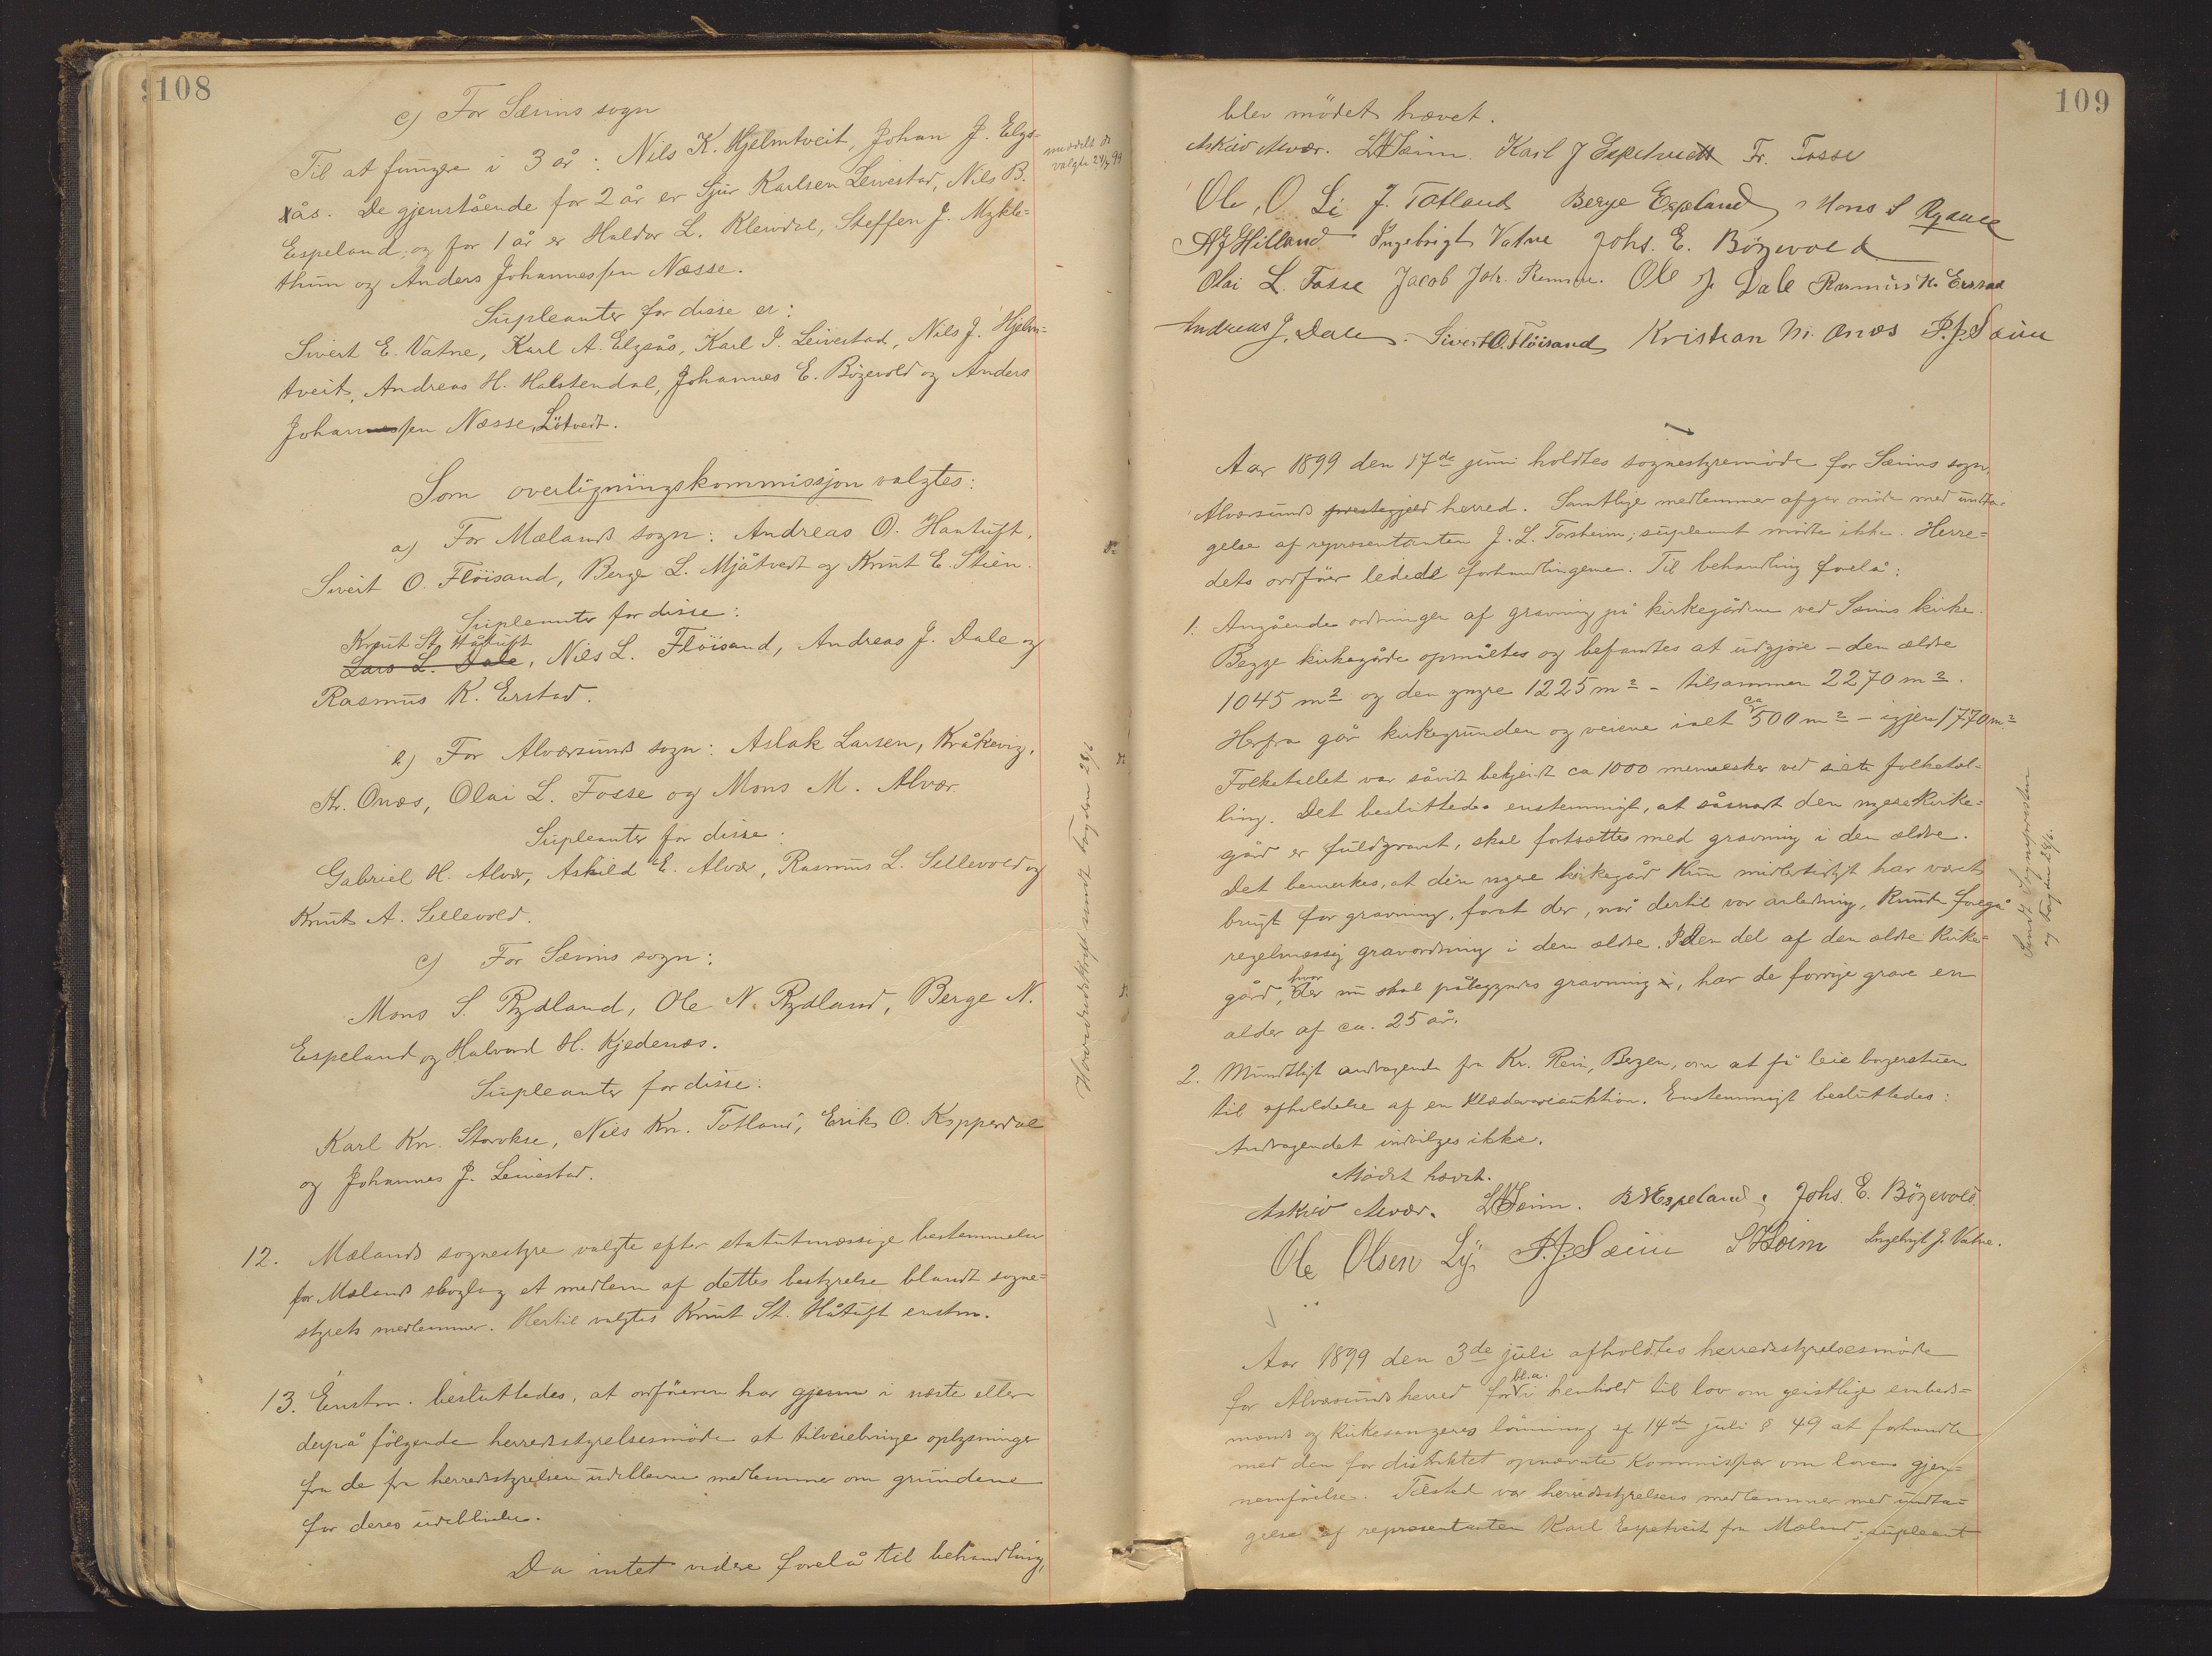 108
c) For Sæims sogn
Til at fungere i 3 år: Nils K. Hjelmtveit, Johan J. Elgs-
ås. De gjenstående for 2 år er Sjur Karlsen Leivestad, Nils B.
Espeland, og for 1 år er Haldor L. Kleivdal, Steffen J. Mykle-
thun og Anders Johannessen Næsse.
meddelt de
valgte 24/7 99
Supleanter for disse er:
Sivert E. Vatne, Karl A. Elgsås, Karl I. Leivestad, Nils J. Hjelm-
tveit, Andreas H. Halstendal, Johannes E. Bögevold og Anders
Johannessen Næsse, Lötvedt.
Som overligningskommissjon valgtes:
a) For Mælands sogn: Andreas O. Hantuft,
Sivert O. Flöisand, Berge L. Mjåtvedt og Knut E. Stien.
Supleanter for disse:
Knut St. Håtuft
Lars L. Dale, Nils L. Flöisand, Andreas J. Dale og
Rasmus K. Erstad.
b) For Alværsunds sogn: Aslak Larsen, Kråkevig,
Kr. Onæs, Olai L. Fosse og Mons M. Alvær.
Supleanter for disse:
Gabriel H. Alvær, Askild E. Alvær, Rasmus L. Sellevold og
Knut A. Sellevold.
c) For Sæims sogn:
Mons S. Rydland, Ole N. Rydland, Berge N.
Espeland og Halvord H. Kjedenæs.
Supleanter for disse:
Karl Kn. Storokse, Nils Kn. Totland, Erik O. Kopperdal
og Johannes J. Leivestad.
Hovedudskrift sendt Fogden 28/6
12. Mælands sognestyre valgte efter statutmæssige bestemmelser
for Mælands skoglag et medlem af dettes bestyrelse blandt sogne-
styrets medlemmer. Hertil valgtes Knut St. Håtuft enstm.
13. Enstm. besluttedes, at ordföreren har gjenn i næste eller
derpå fölgende herredsstyrelsesmöde at tilveiebringe oplysninger
fra de fra herredsstyrelsen udeblevne medlemmer om grundene
for deres udeblivelse.
Da intet videre forelå til behandling,
109
blev mödet hævet.
Askild Alvær. L Sæim. Karl J Espetveit Fr. Fosse
Ole O. Li J. Totland Berge Espeland Mons S Rydland
A J Hilland Ingebrigt Vatne Johs. E. Bögevold
Olai L. Fosse Jacob Joh. Remme. Ole J. Dale Rasmus K. Erstad
Andreas J. Dale. Sivert O. Flöisand Kristian M. Onæs P. J. Sæim
Aar 1899 den 17de juni holdtes sognestyremöde for Sæims sogn,
Alværsunds prestegjeld herred. Samtlige medlemmer afgav möde med undta-
gelse af repræsentanten J. L. Torsheim; supleant mödte ikke. Herre-
dets ordförer ledede forhandlingerne. Til behandling forelå:
1. Angående ordningen af gravning på kirkegårdene ved Sæims kirke.
Begge kirkegårde opmåltes og befandtes at udgjöre – den ældre
1045 m² og den yngre 1225 m² – tilsammen 2270 m².
Herfra går kirkegrunden og veiene ialt ca 500 m² – igjen 1770 m²
Folketallet var såvidt bekjendt ca 1000 mennesker ved siste folketæl-
ling. Det besluttedes enstemmigt, at såsnart den nyere kirke-
gård er fuldgravet, skal fortsættes med gravning i den ældre.
Det bemerkes, at den nyere kirkegård kun midlertidigt har været
brugt for gravning, forat der, når dertil var anledning, kunde foregå
regelmæssig gravordning i den ældre. I den del af den ældre kirke-
gård, der hvor nu skal påbegyndes gravning i, har de forrige grave en
alder af ca. 25 år.
Sendt Sognepresten
og Fogden 28/6.
2. Mundtligt andragende fra Kr. Rein, Bergen, om at få leie borgerstuen
til afholdelse af en klædevareauktion. Enstemmigt besluttedes:
Andragendet indvilges ikke.
Mödet hævet.
Askild Alvær. L Sæim. B N Espeland, Johs. E. Bögevold.
Ole Olsen Li P. J. Sæim L Sæim Ingebrigt J. Vatne.
Aar 1899 den 3de juli afholdtes herredsstyrelsesmöde
for Alværsunds herred for bl. a. i henhold til lov om geistlige embeds-
mænds og kirkesangeres lönning af 14de juli § 49 at forhandle
med den for distriktet opnævnte kommissær om lovens gjen-
nemförelse. Tilstede var herredsstyrelsens medlemmer med undta-
gelse af repræsentanten Karl Espetveit fra Mæland; supleant